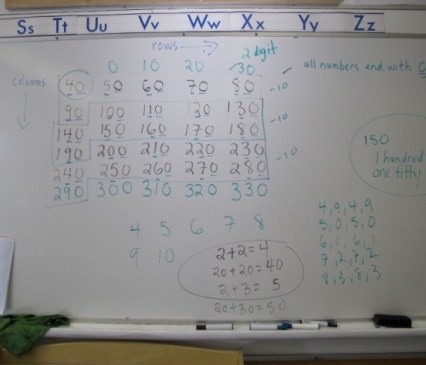 Ss Tt Uu Vv Ww Xx Yy Zz
rows
2 digit
0 10 20 30
all numbers end with
columns
40 50 60 70 80 -10
90 100 110 120 130 -10
140 150 160 170 180
190 200 210 220 230 -10
240 250 260 270 280
290 300 310 320 330
150
1 hundred
one fifty
4 5 6 7 8
9 10
2+2=4
20+20=40
2+3=5
20+30=50
4,9,4,9
5,0,5,0
6,1,6,1
7,2,7,2
8,3,8,3